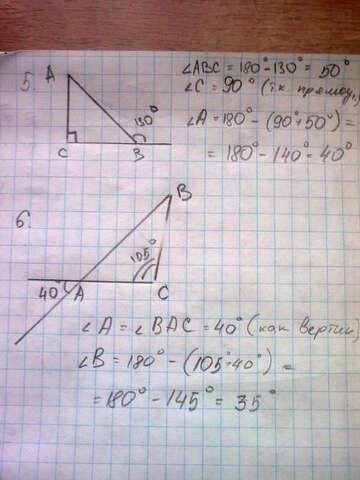 5.
A
C
B
130°
∠ABC = 180° - 130° = 50°
∠C = 90° (т.к. прямоуг.)
∠A = 180° - (90° + 50°) =
= 180° - 140° = 40°
6.
B
105°
40°
A
C
∠A = ∠BAC = 40° (как вертик)
∠B = 180° - (105° + 40°) =
= 180° - 145° = 35°